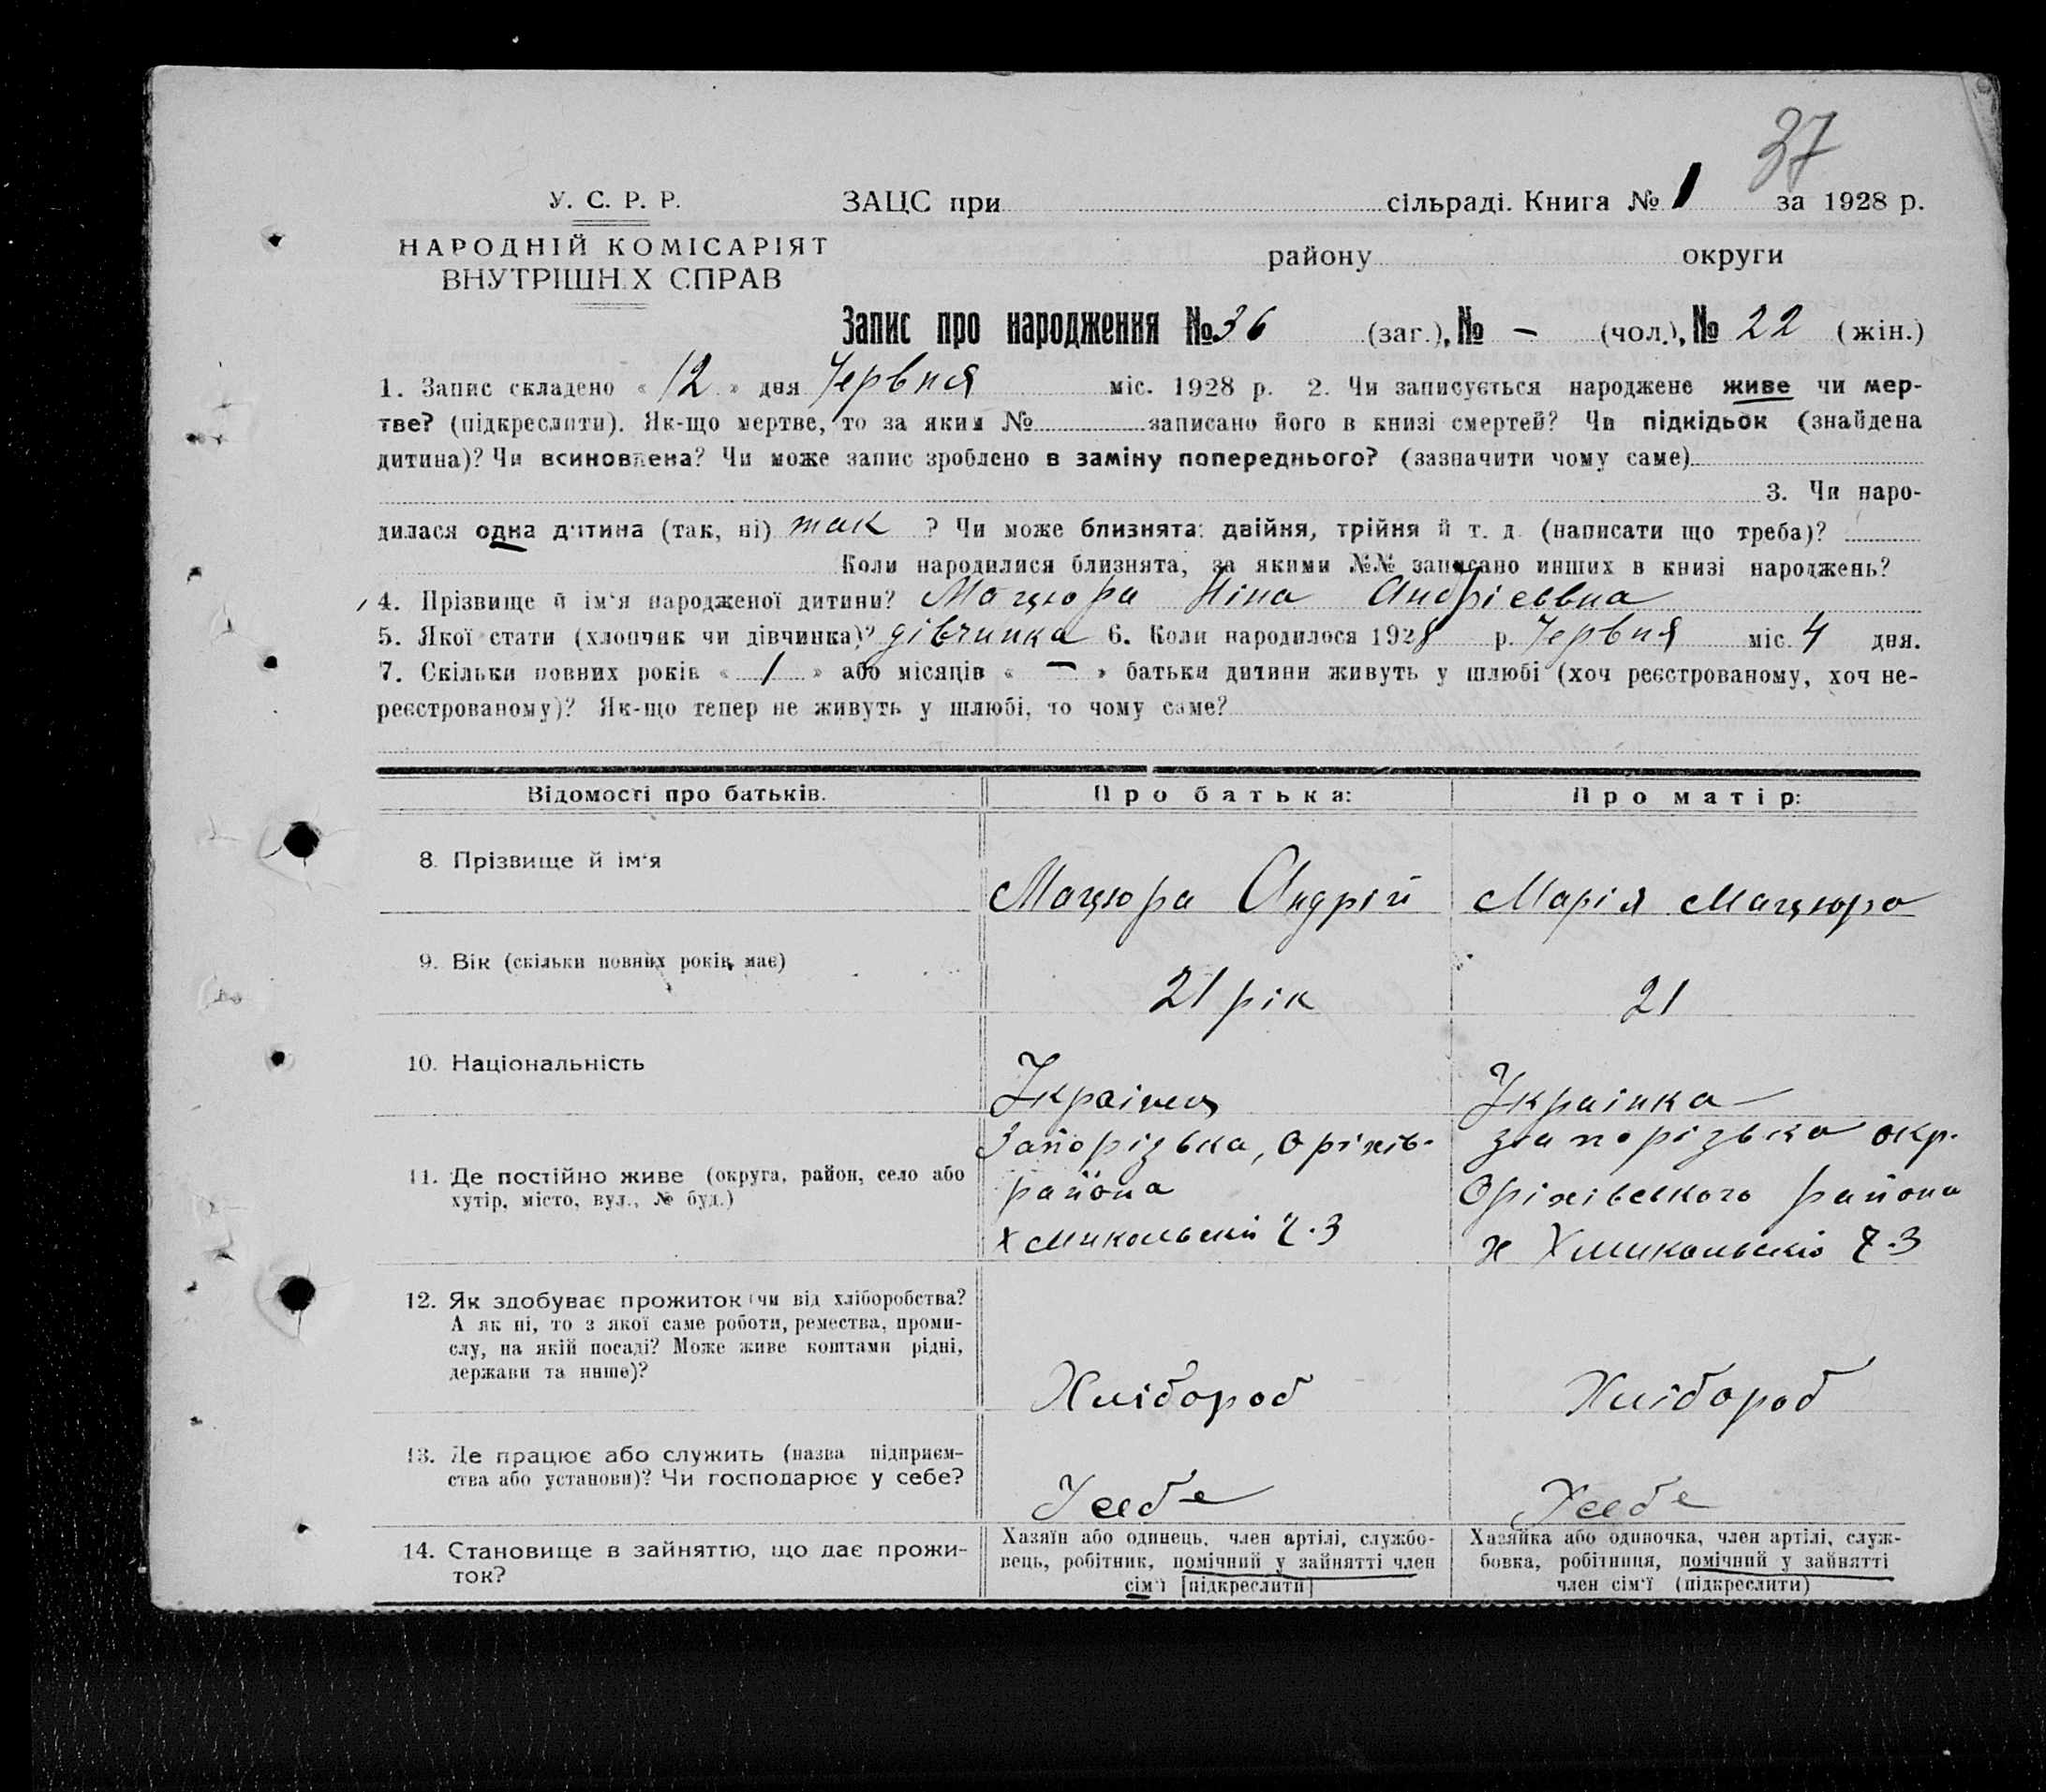 37
У. С. Р. Р.
ЗАЦС при сільраді. Книга № 1 за 1928 р.
НАРОДНІЙ КОМІСАРІЯТ
ВНУТРІШН.Х СПРАВ
району округи
Запис про народження № 36 (заг.), № – (чол.), № 22 (жін.)
1. Запис складено « 12 » дня Червня міс. 1928 р. 2. Чи записується народжене живе чи мер-
тве? (підкреслити). Як-що мертве, то за яким № записано його в книзі смертей? Чи підкідьок (знайдена
дитина)? Чи всиновлена? Чи може запис зроблено в заміну попереднього? (зазначити чому саме)
3. Чи наро-
дилася одна дитина (так, ні) так ? Чи може близнята: двійня, трійня й т. д. (написати що треба)?
Коли народилися близнята, за якими №№ записано инших в книзі народжень?
4. Прізвище й ім'я народженої дитини? Мацюра Ніна Андрієвна
5. Якої стати (хлопчик чи дівчинка)? дівчинка 6. Коли народилося 1928 р. Червня міс. 4 дня.
7. Скільки повних років « 1 » або місяців « – » батьки дитини живуть у шлюбі (хоч реєстрованому, хоч не-
реєстрованому)? Як-що тепер не живуть у шлюбі, то чому саме?
Відомості про батьків. Про батька: Про матір:
8. Прізвище й ім'я
Мацюра Андрій Марія Мацюра
9. Вік (скільки повних років має)
21 рік 21
10. Національність
Українец Українка
11. Де постійно живе (округа, район, село або
хутір, місто, вул., № буд.)
Запорізька, Оріхів-
района
х Микольский 3
Запорізька окр.
Оріхівського района
х 3
12. Як здобуває прожиток (чи від хліборобства?
А як ні, то з якої саме роботи, ремества, проми-
слу, на якій посаді? Може живе коштами рідні,
держави та инше)?
Хлібороб Хлібороб
13. Де працює або служить (назва підприєм-
ства або установи)? Чи господарює у себе?
У себе У себе
14. Становище в зайняттю, що дає прожи-
ток?
Хазяїн або одинець, член артілі, службо-
вець, робітник, помічний у зайнятті член
сім'ї [підкреслити]
Хазяйка або одиночка, член артілі, служ-
бовка, робітниця, помічний у зайнятті
член сім'ї (підкреслити)